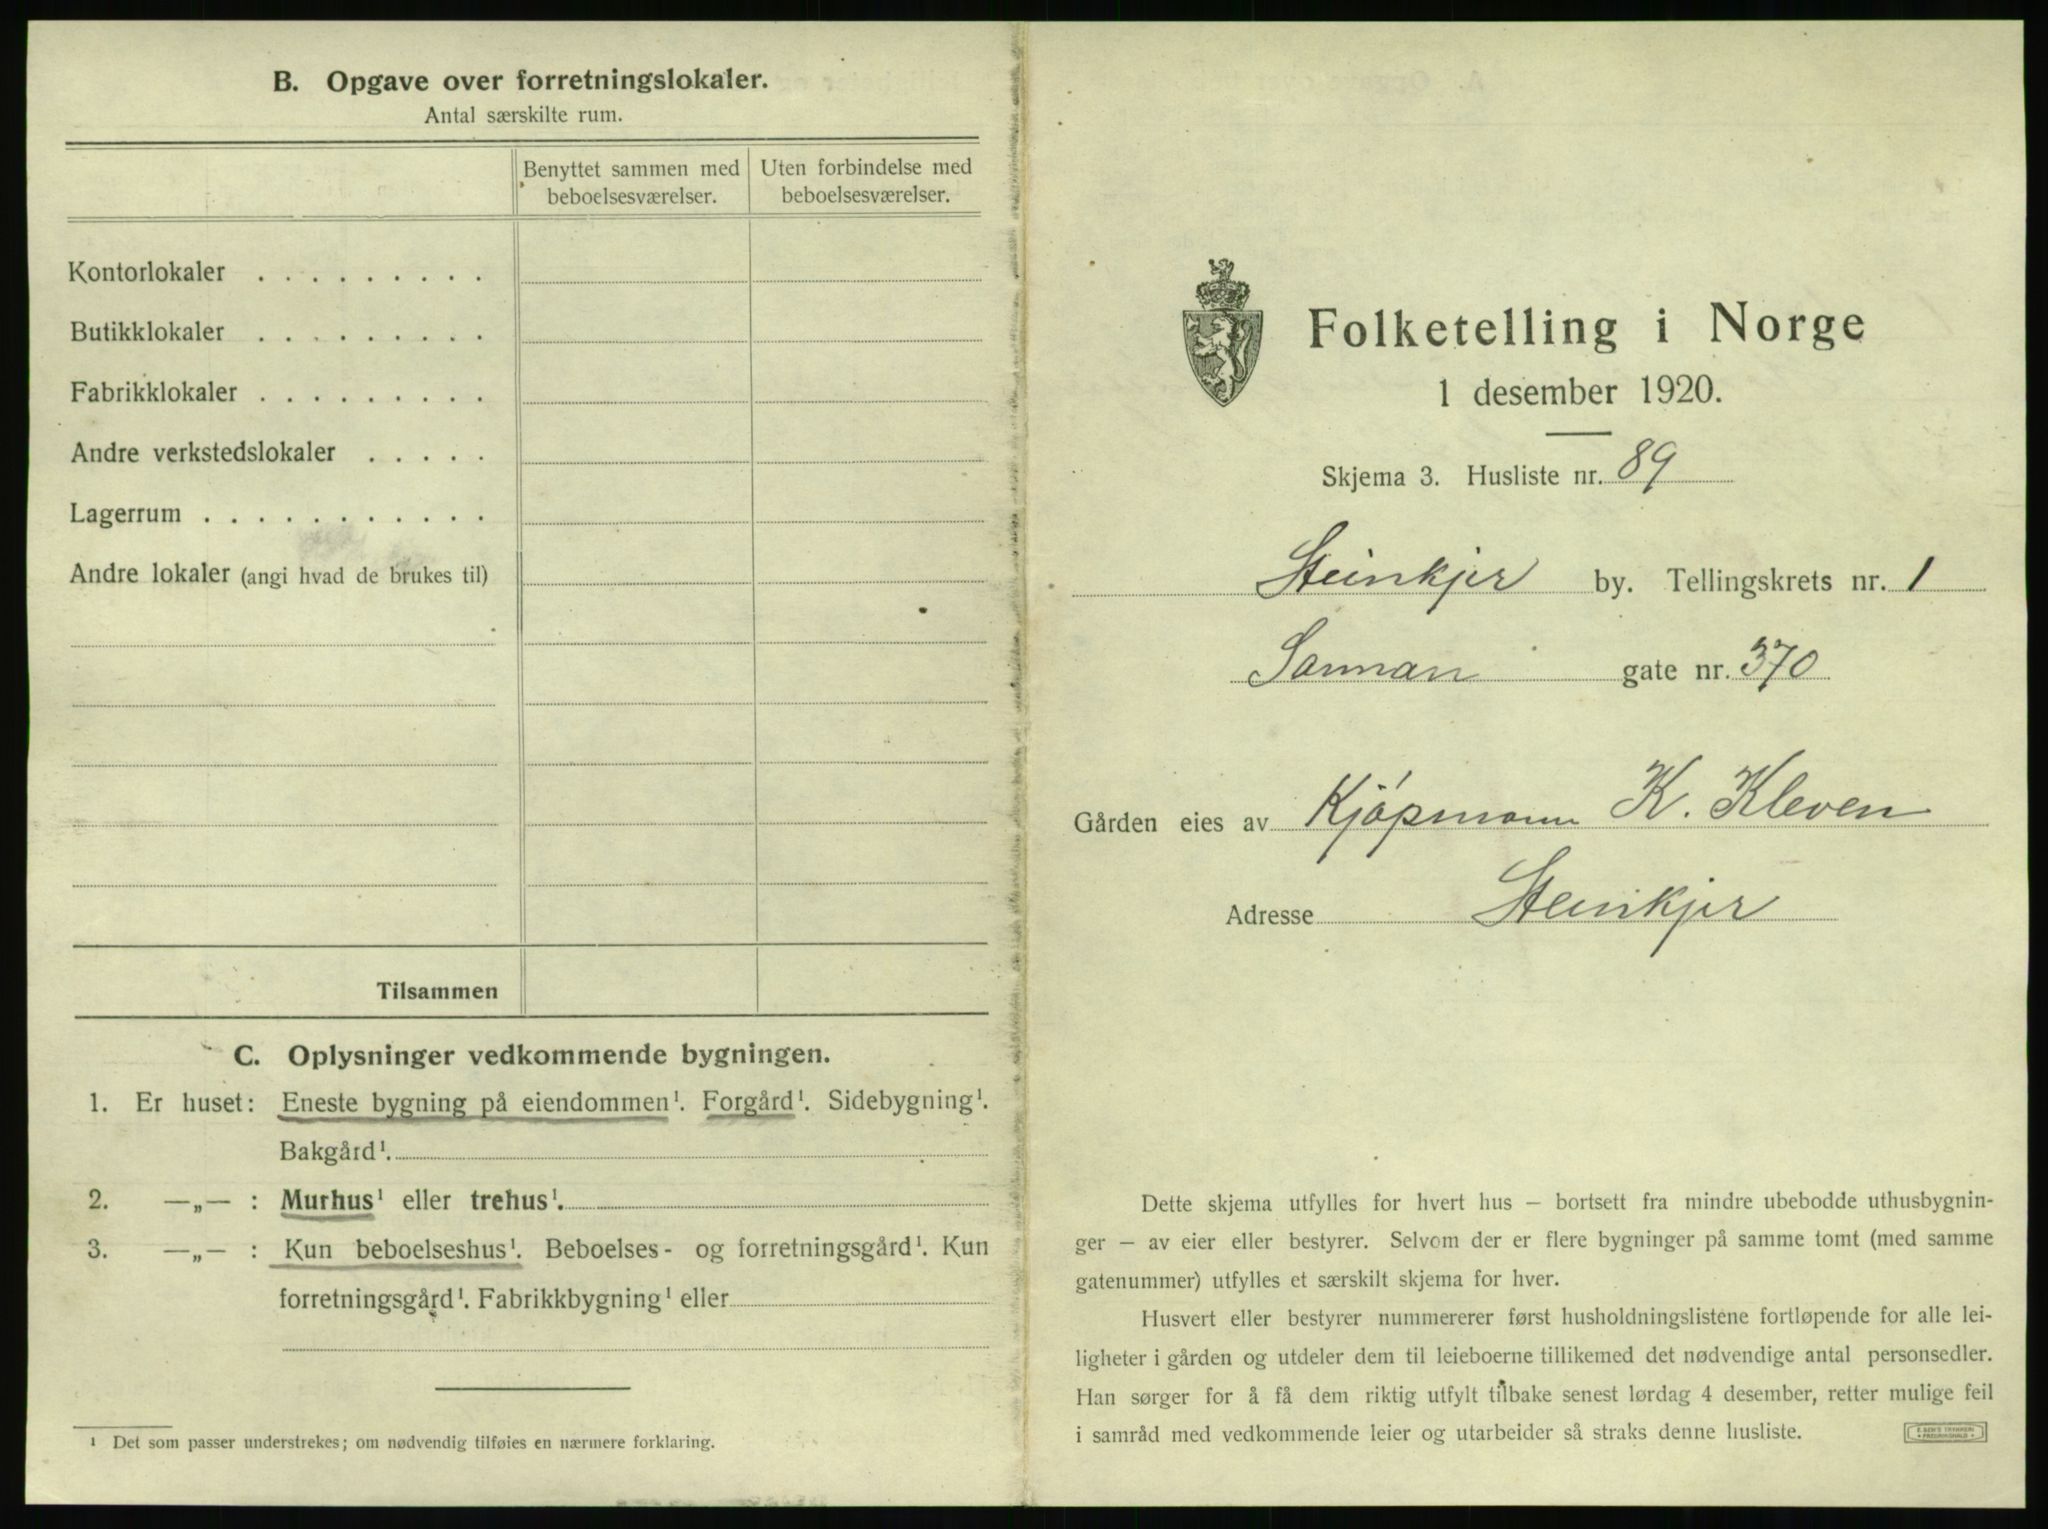 B. Opgave over forretningslokaler.
Antal særskilte rum.
Benyttet sammen med beboelsesværelser.
Uten forbindelse med beboelsesværelser.
Kontorlokaler . . . . . . . . .
Butikklokaler . . . . . . . . .
Fabrikklokaler . . . . . . . . .
Andre verkstedslokaler . . . . .
Lagerrum . . . . . . . . . . .
Andre lokaler (angi hvad de brukes til)
Tilsammen
C. Oplysninger vedkommende bygningen.
1. Er huset: Eneste bygning på eiendommen¹. Forgård¹. Sidebygning¹.
Bakgård¹.
2. —„— : Murhus¹ eller trehus¹.
3. —„— : Kun beboelseshus¹. Beboelses- og forretningsgård¹. Kun
forretningsgård¹. Fabrikkbygning¹ eller
¹ Det som passer understrekes; om nødvendig tilføies en nærmere forklaring.
Folketelling i Norge
1 desember 1920.
Skjema 3. Husliste nr. 89
Steinkjer by. Tellingskrets nr. 1
Sannan gate nr. 370
Gården eies av Kjøpmann K. Kleven
Adresse Steinkjer
Dette skjema utfylles for hvert hus – bortsett fra mindre ubebodde uthusbygnin-
ger – av eier eller bestyrer. Selvom der er flere bygninger på samme tomt (med samme
gatenummer) utfylles et særskilt skjema for hver.
Husvert eller bestyrer nummererer først husholdningslistene fortløpende for alle lei-
ligheter i gården og utdeler dem til leieboerne tillikemed det nødvendige antal personsedler.
Han sørger for å få dem riktig utfylt tilbake senest lørdag 4 desember, retter mulige feil
i samråd med vedkommende leier og utarbeider så straks denne husliste.